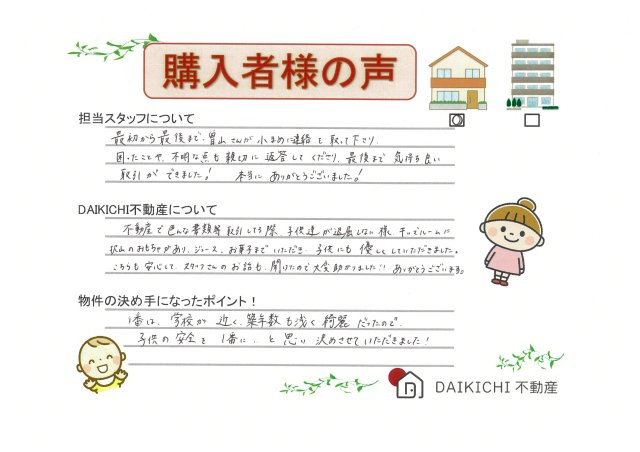 購入者様の声
担当スタッフについて
最初から最後まで、冒山さんが小まめに連絡を取って下さり、
困ったことや、不明な点も親切に返答してくださり、最後まで気持ち良い
取引ができました！ 本当にありがとうございました！
DAIKICHI不動産について
不動産で色んな書類等取引してる際、子供達が退屈しない様キッズルームに
沢山のおもちゃがあり、ジュース、お菓子までいただき、子供にも優しくしていただきました。
こちらも安心して、スタッフさんのお話も、聞けたので大変助かりました!! ありがとうございます。
物件の決め手になったポイント！
1番は、学校が近く、築年数も浅く綺麗だったので、
子供の安全を1番に、と思い決めさせていただきました！
DAIKICHI 不動産